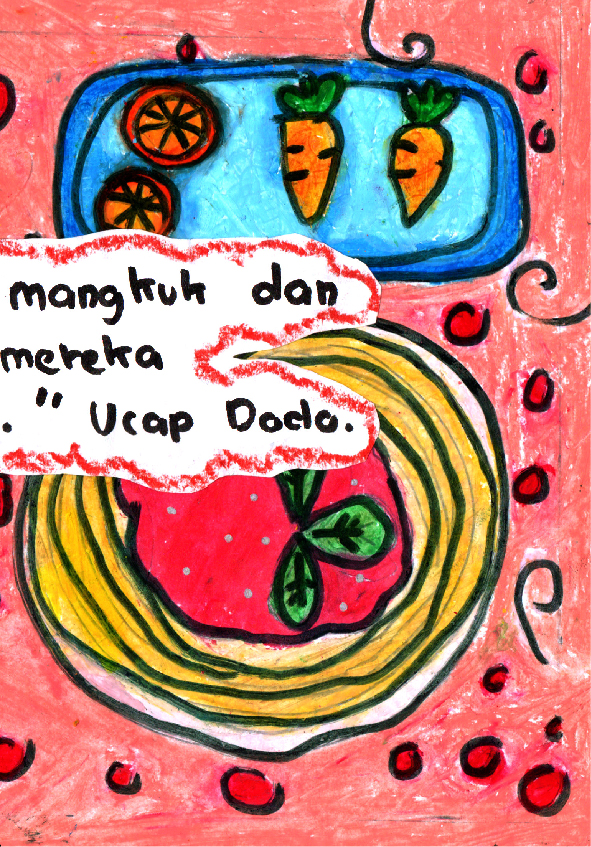 mangkuk dan
mereka
." Ucap Dodo.